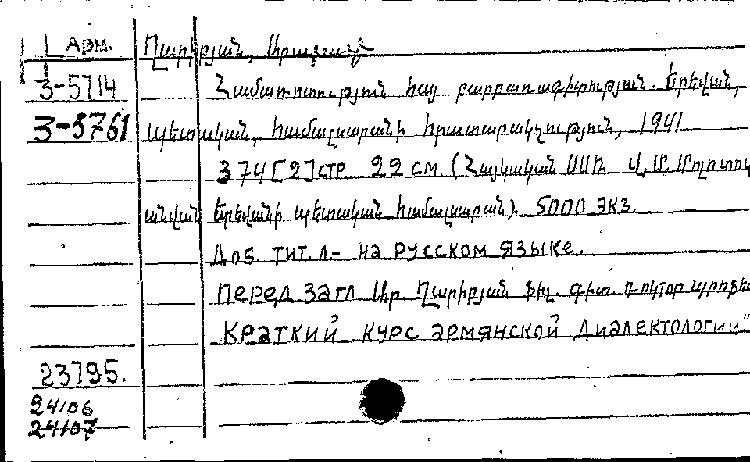 Арм.
Ղարիբյան, Արարատ
3-5714
Համառոտություն հայ բարբառագիտության. Երեվան,
3-5761
պետական, համալսարանի հրատարակչություն, 1941
374 [2] стр 22 см. (Հայկական ՍՍՌ Վ. Մ. Մոլոտովի
անվան Երեվանի պետական համալսարան). 5000 экз.
Доб. тит. л- на русском языке.
Перед загл Ար. Ղարիբյան ֆիլ. գիտ. դոկտոր պրոֆես
Краткий курс армянской диалектологии"
23795.
24106
24107